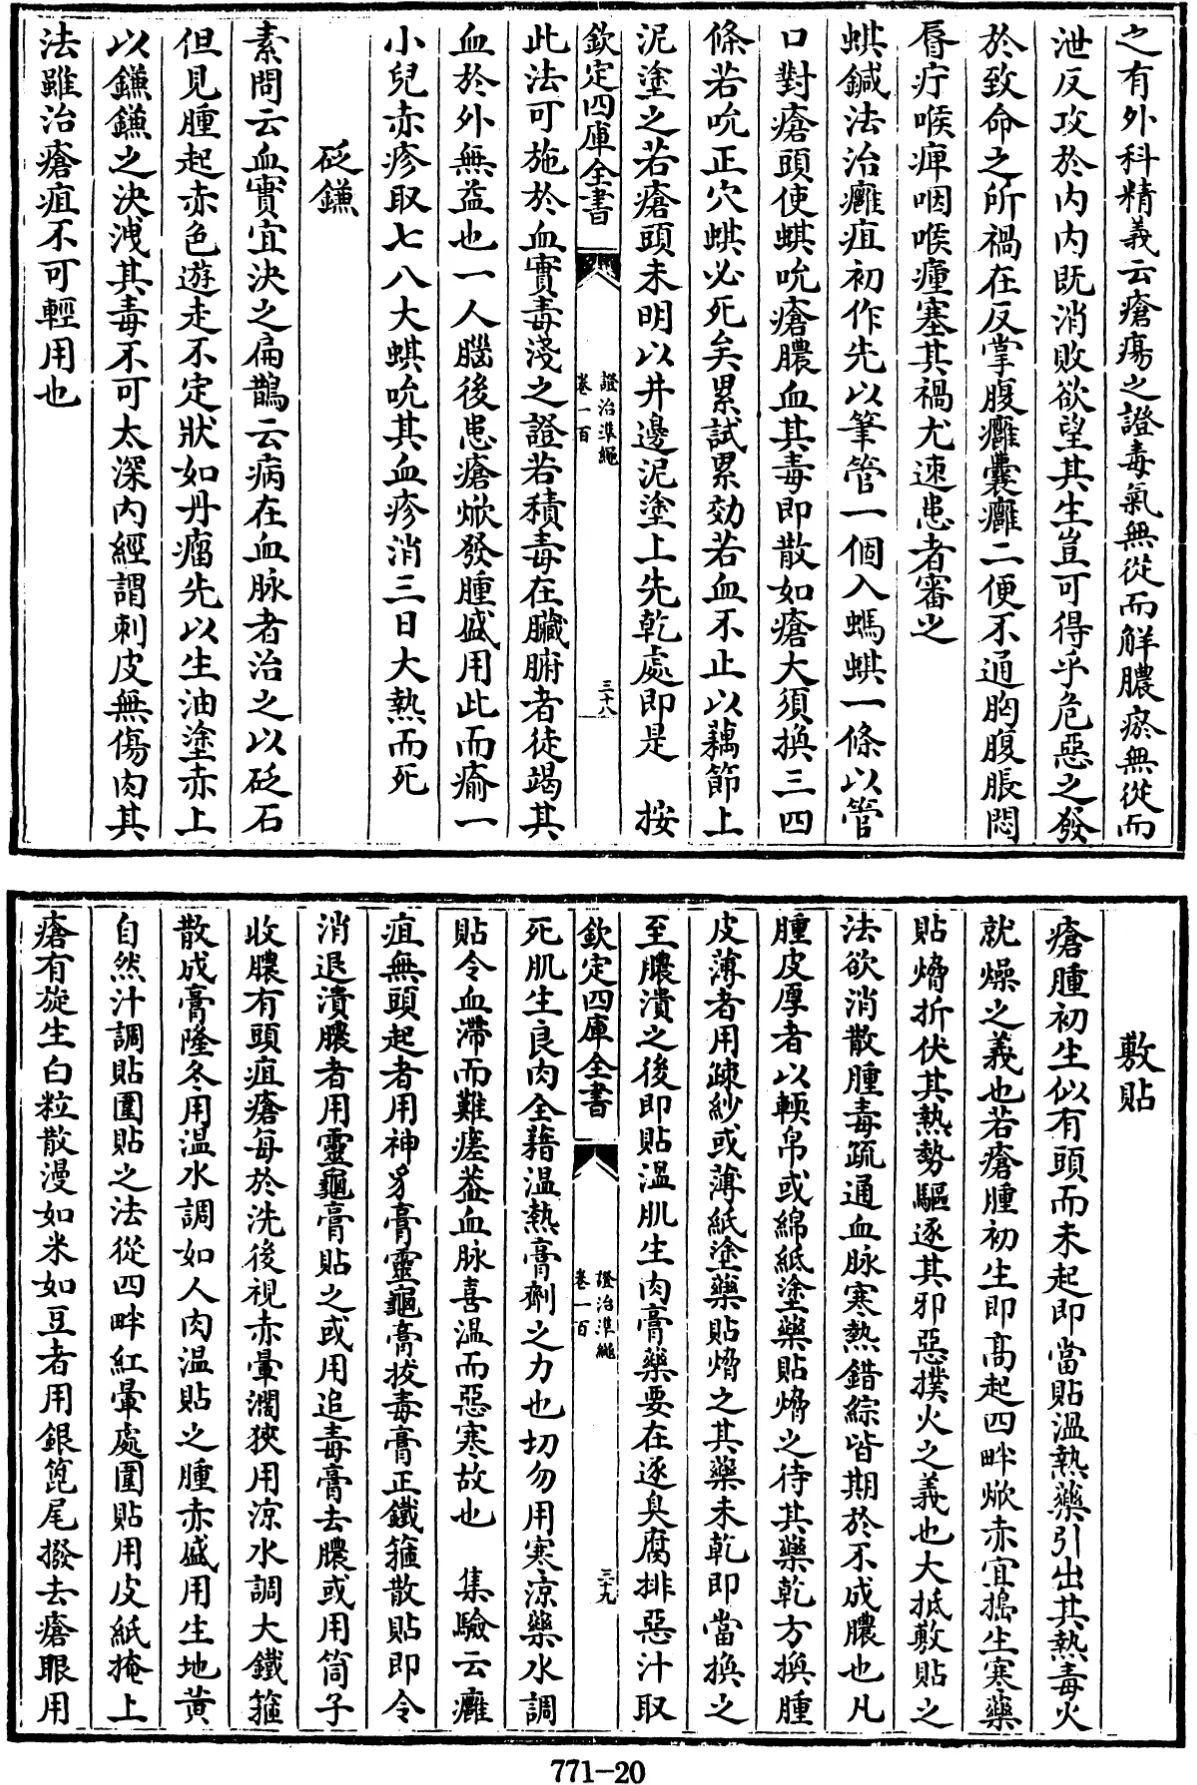 之有外科精義云瘡瘍之證毒氣無從而解膿瘀無從而
泄反攻於内内既消敗欲望其生豈可得乎危惡之發
於致命之所禍在反掌腹癰囊癰二便不通胸腹脹悶
脣疔喉痺咽喉瘇塞其禍尤速患者審之
蜞鍼法治癰疽初作先以筆管一個入螞蜞一條以管
口對瘡頭使蜞吮瘡膿血其毒即散如瘡大須換三四
條若吮正穴蜞必死矣累試累効若血不止以藕節上
泥塗之若瘡頭未明以井邊泥塗上先乾處即是　按
欽定四庫全書
證治準繩
卷一百
三十八
此法可施於血實毒淺之證若積毒在臟腑者徒竭其
血於外無益也一人腦後患瘡焮發腫盛用此而瘉一
小兒赤疹取七八大蜞吮其血疹消三日大熱而死
砭鎌
素問云血實宜決之扁鵲云病在血脉者治之以砭石
但見腫起赤色遊走不定狀如丹瘤先以生油塗赤上
以鎌鎌之決洩其毒不可太深内經謂刺皮無傷肉其
法雖治瘡疽不可輕用也
敷貼
瘡腫初生似有頭而未起即當貼溫熱藥引出其熱毒火
就燥之義也若瘡腫初生即高起四畔焮赤宜搗生寒藥
貼熁折伏其熱勢驅逐其邪惡撲火之義也大抵敷貼之
法欲消散腫毒疏通血脉寒熱錯綜皆期於不成膿也凡
腫皮厚者以軟帛或綿紙塗藥貼熁之待其藥乾方換腫
皮薄者用疎紗或薄紙塗藥貼熁之其藥未乾即當換之
至膿潰之後即貼溫肌生肉膏藥要在逐臭腐排惡汁取
欽定四庫全書
證治準繩
卷一百
三十九
死肌生良肉全藉溫熱膏劑之力也切勿用寒涼藥水調
貼令血滯而難瘥葢血脉喜溫而惡寒故也　集驗云癰
疽無頭起者用神异膏靈龜膏拔毒膏正鐵箍散貼即令
消退潰膿者用靈龜膏貼之或用追毒膏去膿或用筒子
收膿有頭疽瘡每於洗後視赤暈濶狹用涼水調大鐵箍
散成膏隆冬用温水調如人肉温貼之腫赤盛用生地黄
自然汁調貼圍貼之法從四畔紅暈處圍貼用皮紙掩上
瘡有旋生白粒散漫如米如豆者用銀篦尾撥去瘡眼用
771-20